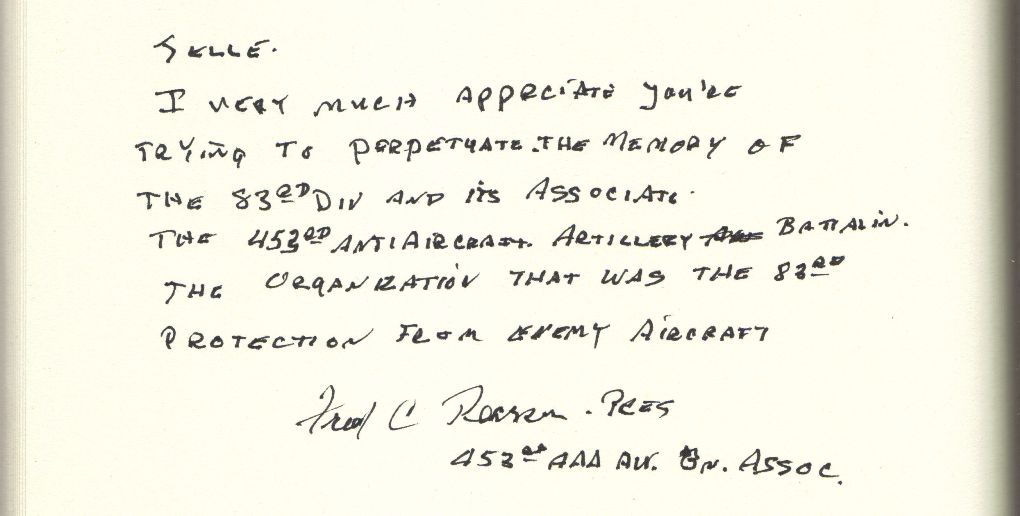 JELLE.
I VERY MUCH APPRCIATE YOU'RE
TRYING TO PERPETUATE THE MEMORY OF
THE 83RD DIV AND ITS ASSOCIATE.
THE 453RD ANTIAIRCRAFT. ARTILLERY BATTALIN.
THE ORGANIZATION THAT WAS THE 83RD
PROTECTION FROM ENEMY AIRCRAFT
Fred C PRES
453RD AAA AW. BN. ASSOC.